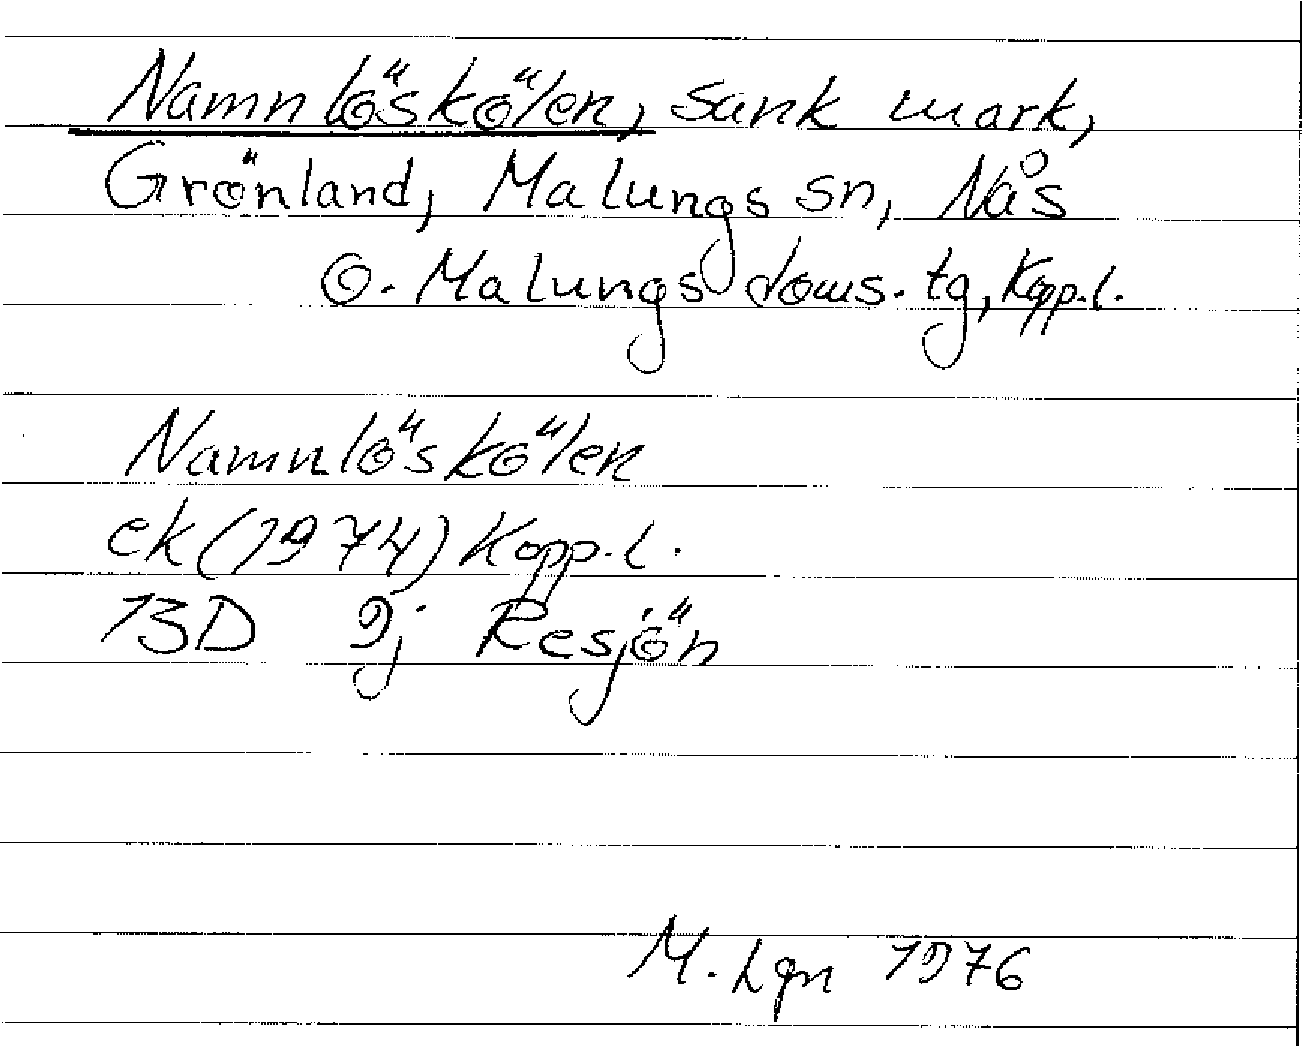 Namnlöskölen, sank mark,
Grönland, Malungs sn, Nås
o. Malungs doms. tg, Kopp.l.
Namnlöskölen
ek (1974) Kopp.l.
13D 9j Resjön
M. Lgn 1976